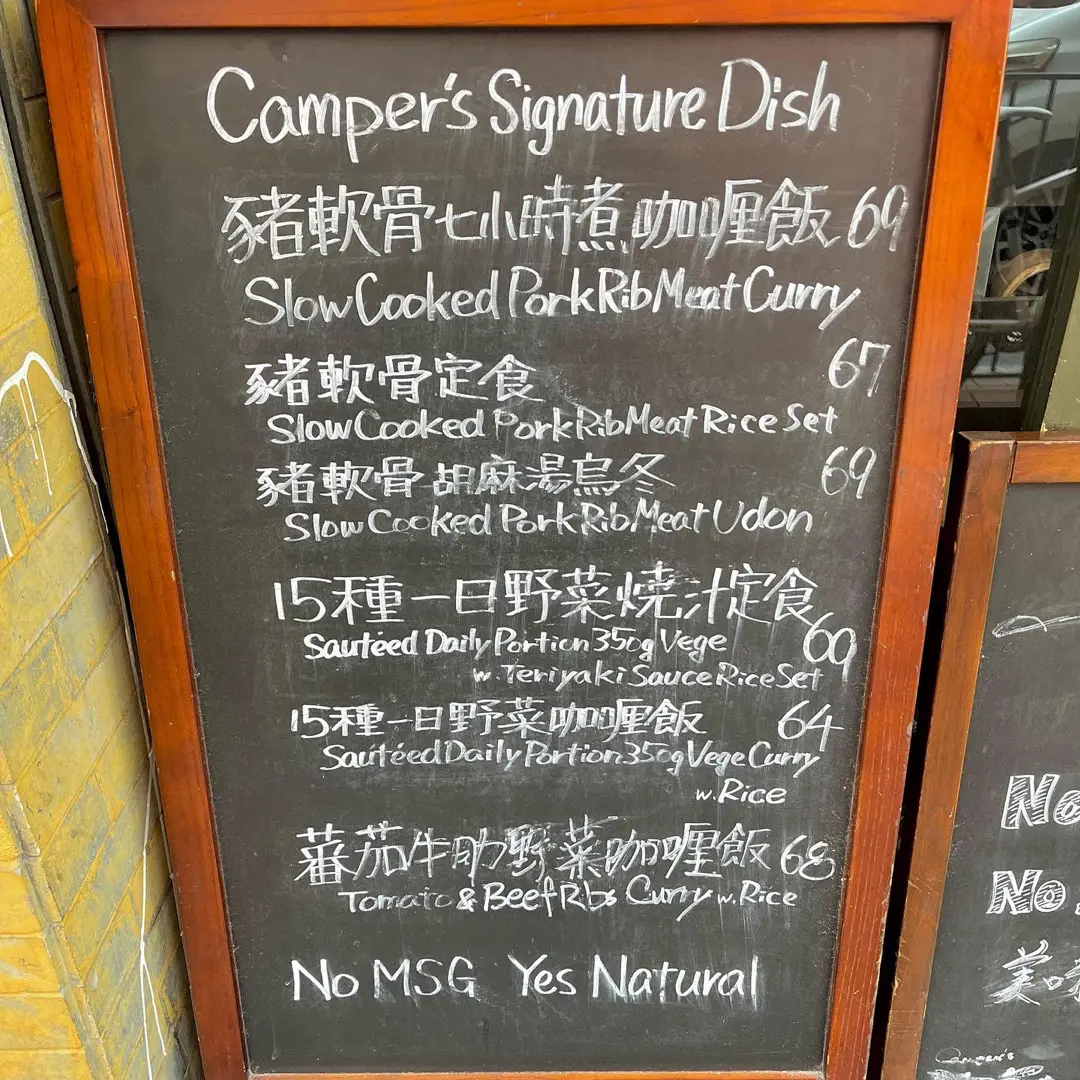 Camper's Signature Dish
豬軟骨七小時煮咖喱飯 69
Slow Cooked Pork Rib Meat Curry
豬軟骨定食 67
Slow Cooked Pork Rib Meat Rice Set
豬軟骨胡麻湯烏冬 69
Slow Cooked Pork Rib Meat Udon
15種一日野菜燒汁定食 69
Sautéed Daily Portion 350g Vege
w. Teriyaki Sauce Rice Set
15種一日野菜咖喱飯 64
Sautéed Daily Portion 350g Vege Curry
w. Rice
蕃茄牛肋野菜咖喱飯 68
Tomato & Beef Ribs Curry w. Rice
No MSG Yes Natural
No
No
Camper's